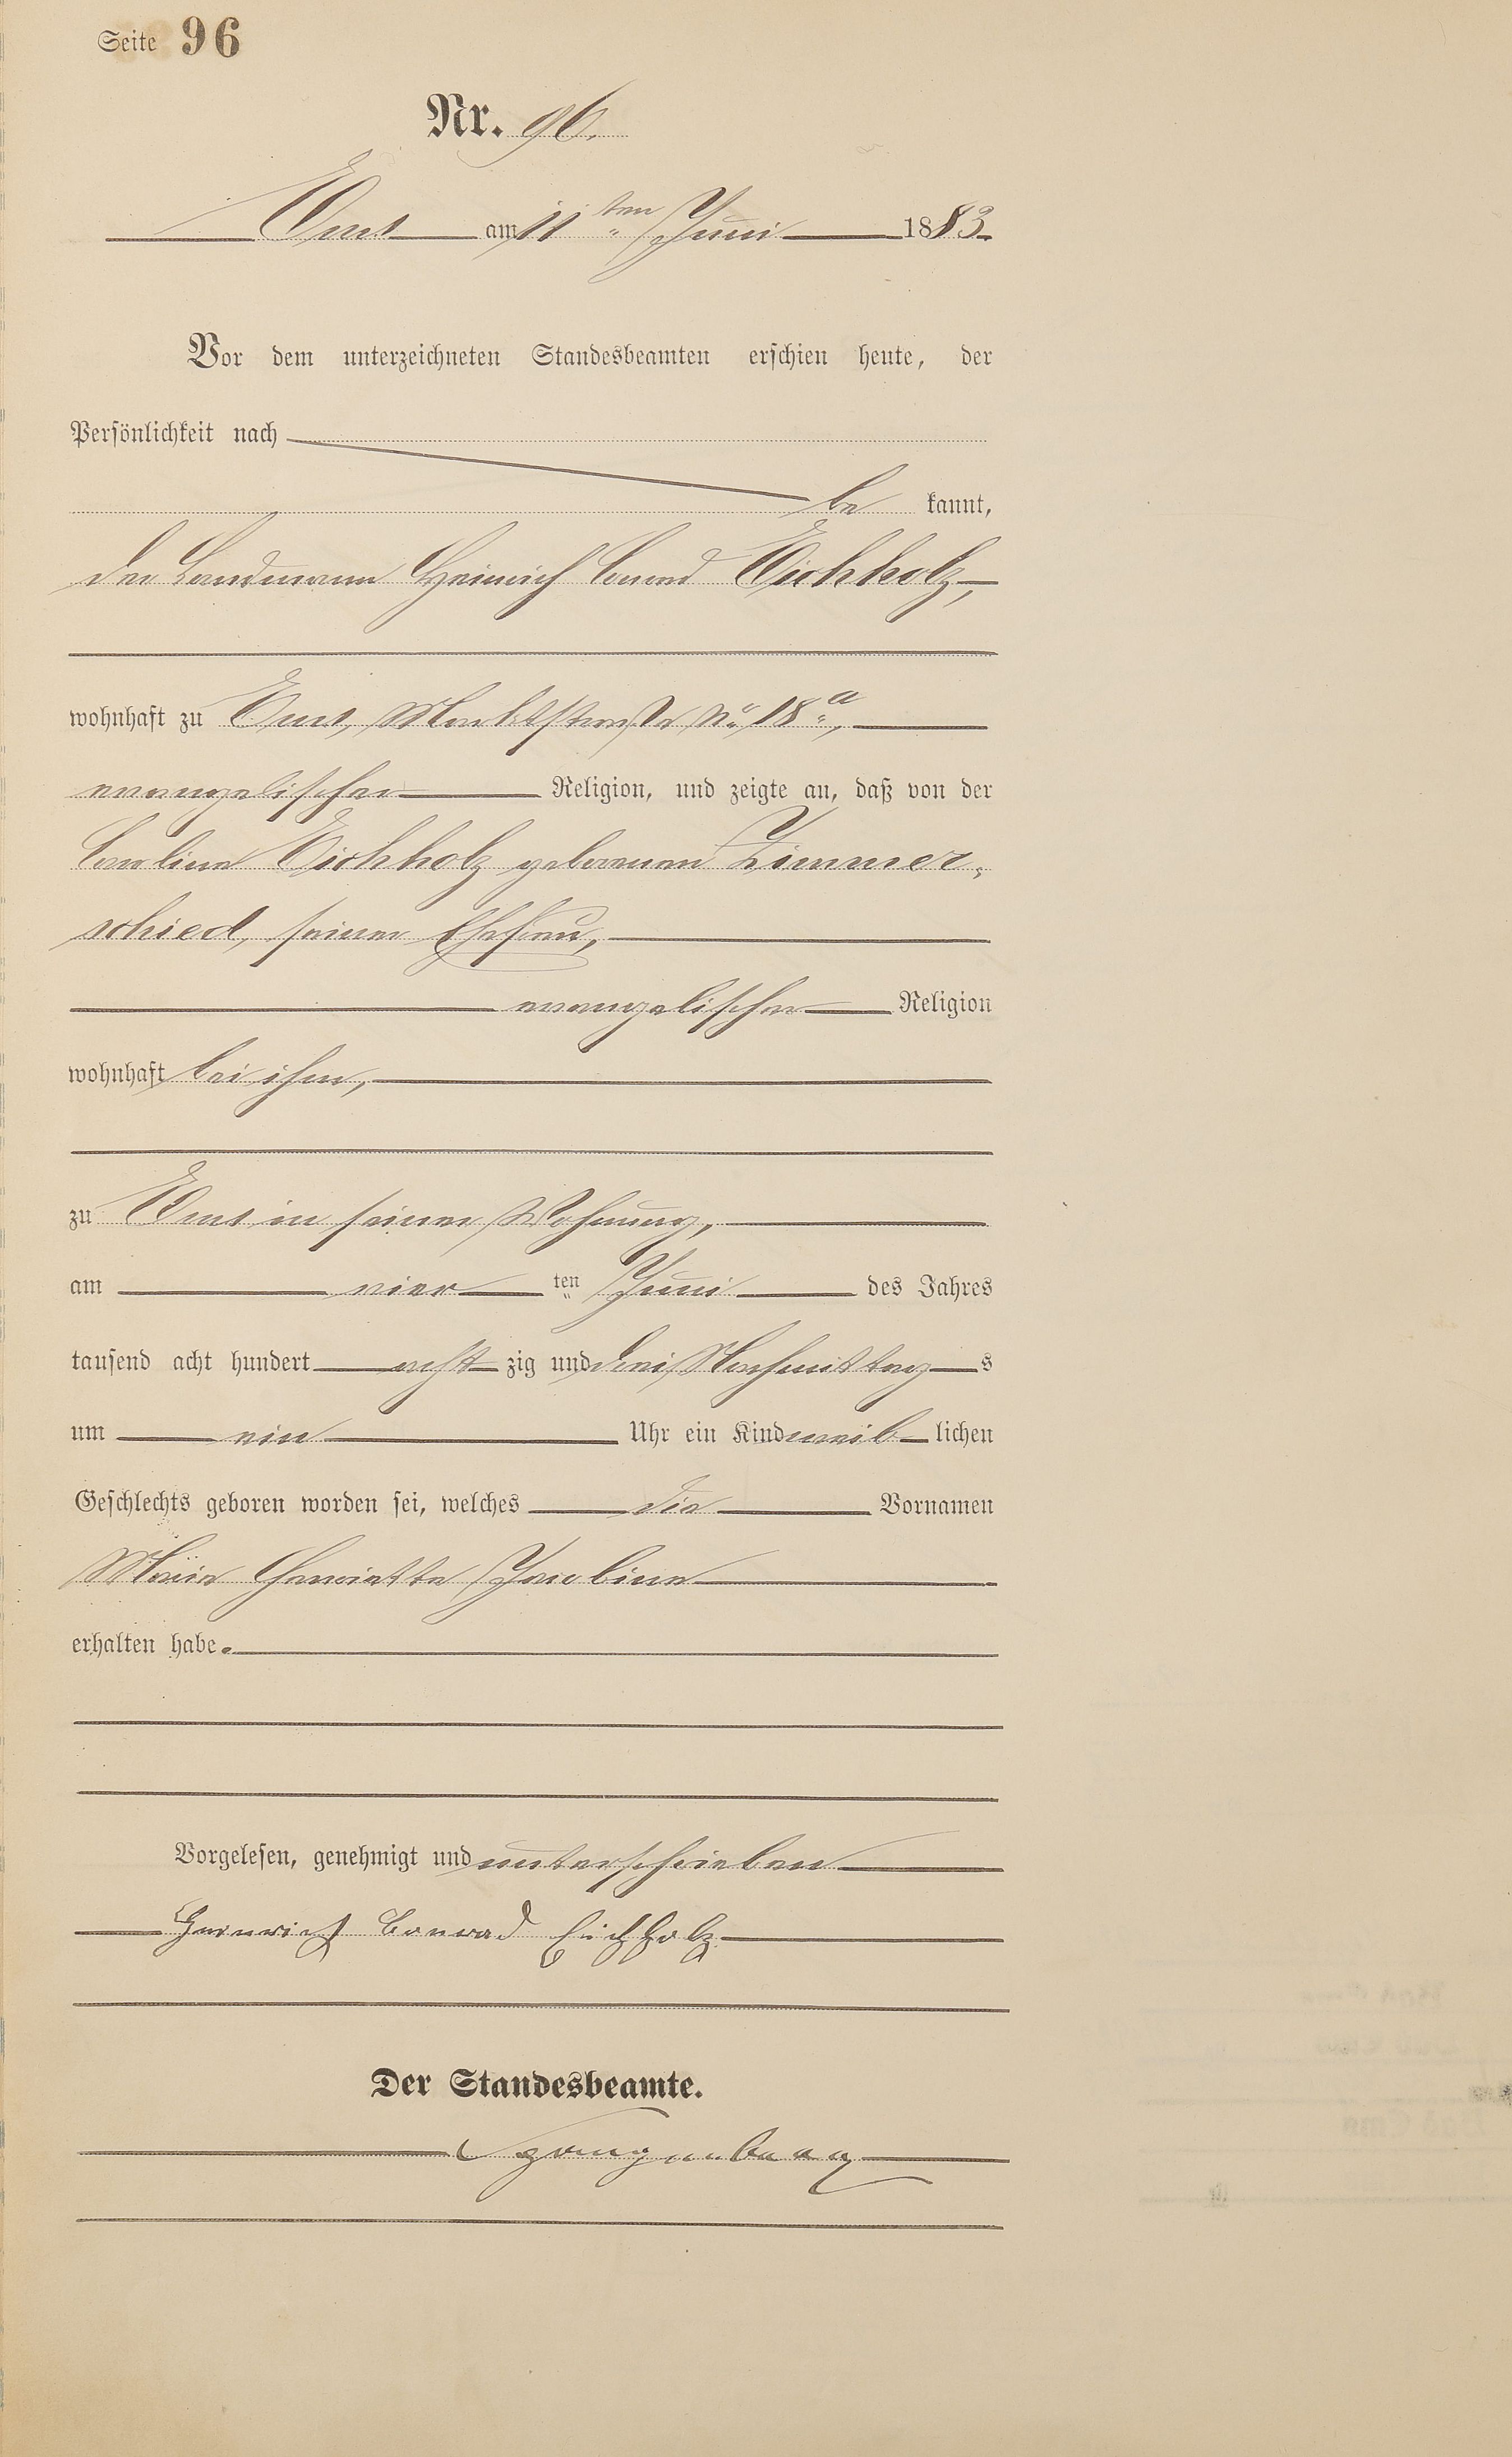 Seite 96
Nr. 96.
Ems am 11ten Juni 1883
Vor dem unterzeichneten Standesbeamten erschien heute, der
Persönlichkeit nach
be kannt,
der Landmann Heinrich Conrad Eichholz,
wohnhaft zu Ems, Marktstraße No 18a,
evangelischer Religion, und zeigte an, daß von der
Caroline Eichholz geborenen Zimmer-
schied, seiner Ehefrau,
evangelischer Religion
wohnhaft bei ihm,
zu Ems in seiner Wohnung,
am vier ten Juni des Jahres
tausend acht hundert acht zig und drei Nachmittag s
um ein Uhr ein Kind weib lichen
Geschlechts geboren worden sei, welches die Vornamen
Maria Henriette Jacobine
erhalten habe.
Vorgelesen, genehmigt und unterschrieben
Heinrich Conrad Eichholz
Der Standesbeamte.
Spangenberg